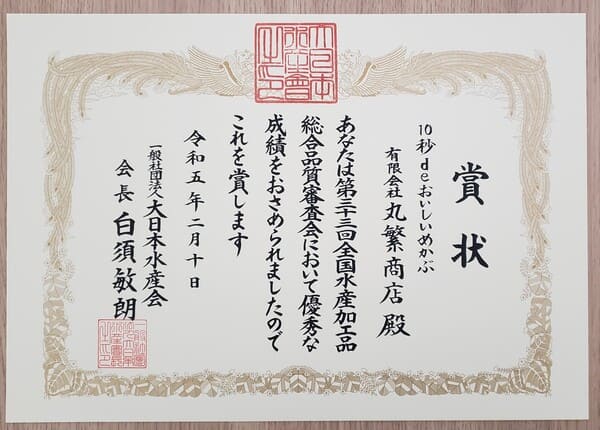 大日本
水産會
之印
賞状
10秒deおいしいめかぶ
有限会社 丸繁商店 殿
あなたは第三十三回全国水産加工品
総合品質審査会において優秀な
成績をおさめられましたので
これを賞します
令和五年二月十日
一般社団法人大日本水産会
会長 白須敏朗